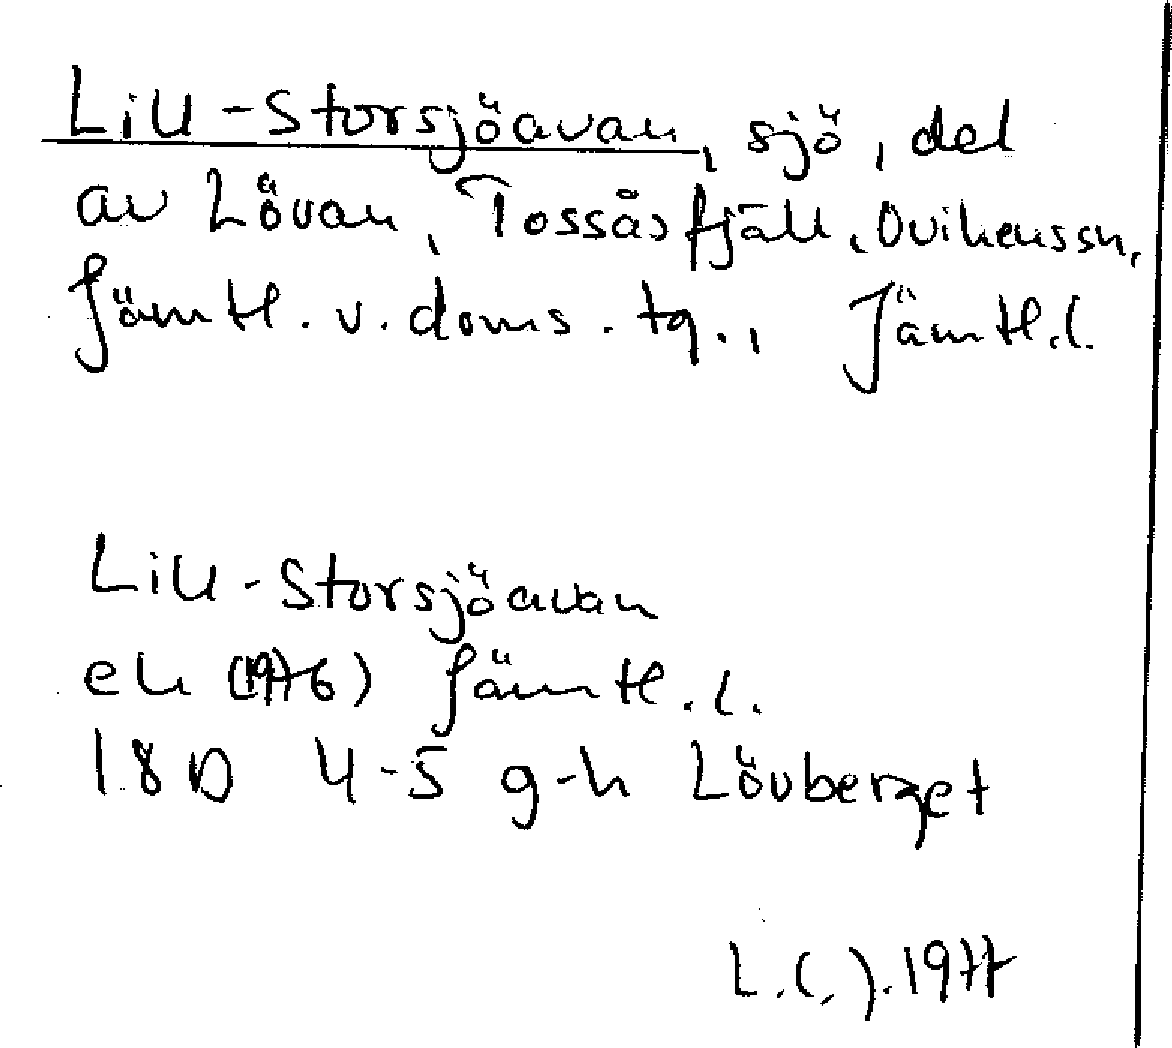 Lill-Storsjöavan, sjö, del
av Lövan, Tossåsfjäll, Ovikens sn,
Jämtl. v. doms. tg., Jämtl. l.
Lill-Storsjöavan
ek (1976) Jämtl. l.
18D 4-5 g-h Lövberget
1977